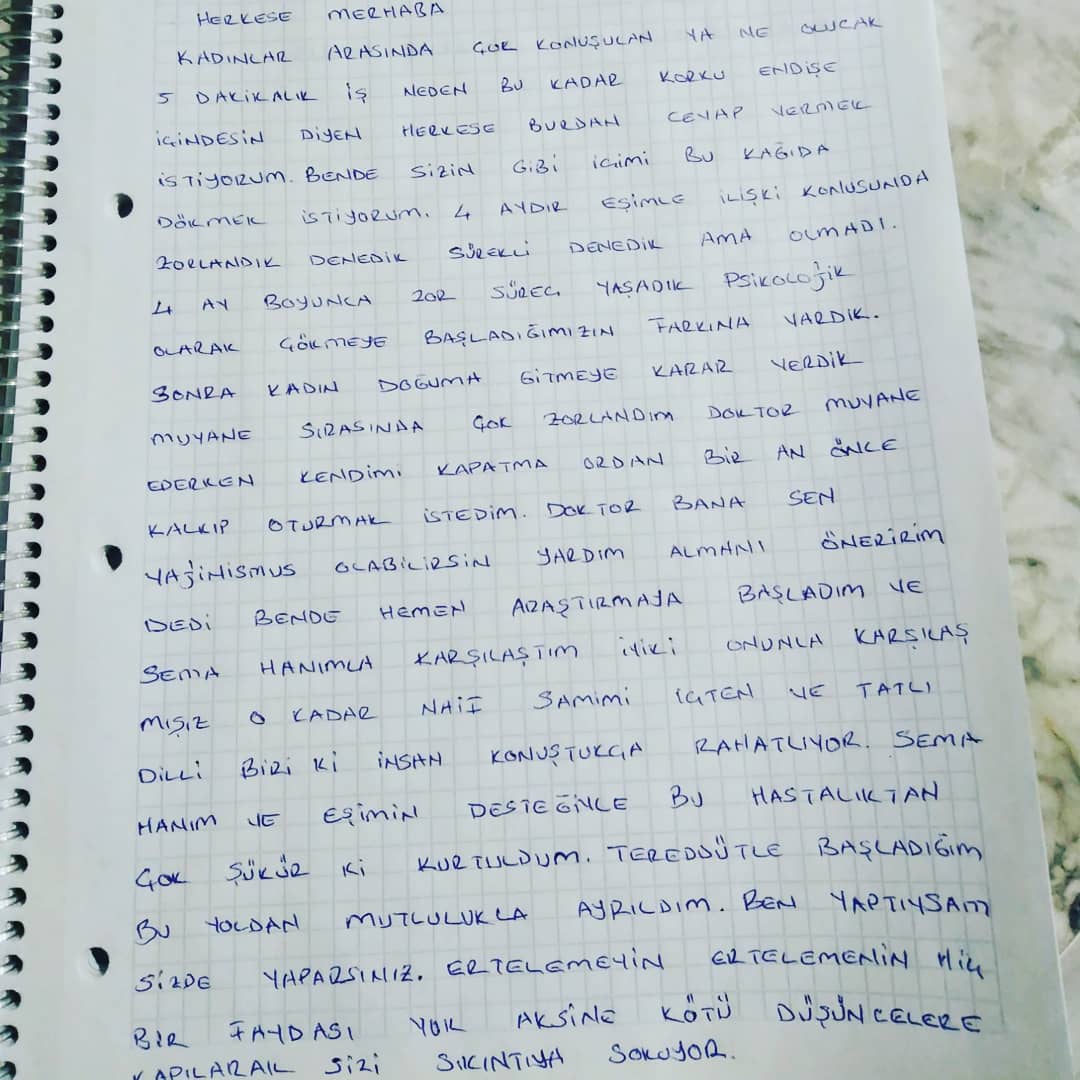 HERKESE MERHABA
KADINLAR ARASINDA ÇOK KONUŞULAN YA NE OLUCAK
5 DAKİKALIK İŞ NEDEN BU KADAR KORKU ENDİŞE
İÇİNDESİN DİYEN HERKESE BURDAN CEVAP VERMEK
İSTİYORUM. BENDE SİZİN GİBİ İÇİMİ BU KAĞIDA
DÖKMEK İSTİYORUM. 4 AYDIR EŞİMLE İLİŞKİ KONUSUNDA
ZORLANDIK DENEDİK SÜREKLİ DENEDİK AMA OLMADI.
4 AY BOYUNCA ZOR SÜREÇ YAŞADIK PSİKOLOJİK
OLARAK ÇÖKMEYE BAŞLADIĞIMIZIN FARKINA VARDIK.
SONRA KADIN DOĞUMA GİTMEYE KARAR VERDİK
MUYANE SIRASINDA ÇOK ZORLANDIM DOKTOR MUYANE
EDERKEN KENDİMİ KAPATMA ORDAN BİR AN ÖNCE
KALKIP OTURMAK İSTEDİM. DOKTOR BANA SEN
VAJİNİSMUS OLABİLİRSİN YARDIM ALMANI ÖNERİRİM
DEDİ BENDE HEMEN ARAŞTIRMAYA BAŞLADIM VE
SEMA HANIMLA KARŞILAŞTIM İYİKİ ONUNLA KARŞILAŞ
MIŞIZ O KADAR NAİF SAMİMİ İÇTEN VE TATLI
DİLLİ BİRİ Kİ İNSAN KONUŞTUKÇA RAHATLIYOR. SEMA
HANIM VE EŞİMİN DESTEĞİYLE BU HASTALIKTAN
ÇOK ŞÜKÜR Kİ KURTULDUM. TEREDDÜTLE BAŞLADIĞIM
BU YOLDAN MUTLULUKLA AYRILDIM. BEN YAPTIYSAM
SİZDE YAPARSINIZ. ERTELEMEYİN ERTELEMENİN HİÇ
BİR FAYDASI YOK AKSİNE KÖTÜ DÜŞÜNCELERE
KAPILARAK SİZİ SIKINTIYA SOKUYOR.